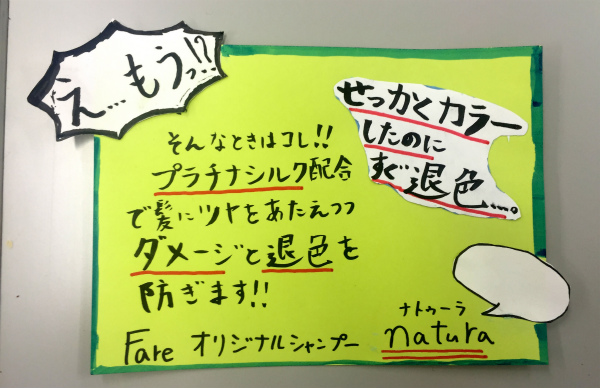 え…もうっ!?
せっかくカラー
したのに
すぐ退色…。
そんなときはコレ!!
プラチナシルク配合
で髪にツヤをあたえつつ
ダメージと退色を
防ぎます!!
ナトゥーラ
Fare オリジナルシャンプー natura